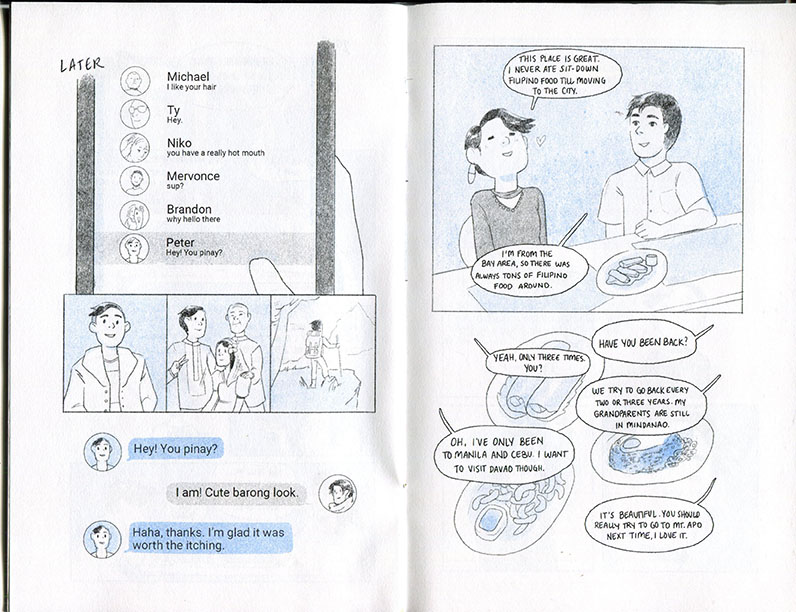 LATER
Michael
I like your hair
Ty
Hey.
Niko
you have a really hot mouth
Mervonce
sup?
Brandon
why hello there
Peter
Hey! You pinay?
Hey! You pinay?
I am! Cute barong look.
Haha, thanks. I'm glad it was
worth the itching.
THIS PLACE IS GREAT.
I NEVER ATE SIT-DOWN
FILIPINO FOOD TILL MOVING
TO THE CITY.
I'M FROM THE
BAY AREA, SO THERE WAS
ALWAYS TONS OF FILIPINO
FOOD AROUND.
HAVE YOU BEEN BACK?
YEAH, ONLY THREE TIMES.
YOU?
WE TRY TO GO BACK EVERY
TWO OR THREE YEARS. MY
GRANDPARENTS ARE STILL
IN MINDANAO.
OH, I'VE ONLY BEEN
TO MANILA AND CEBU. I WANT
TO VISIT DAVAO THOUGH.
IT'S BEAUTIFUL. YOU SHOULD
REALLY TRY TO GO TO MT. APO
NEXT TIME, I LOVE IT.